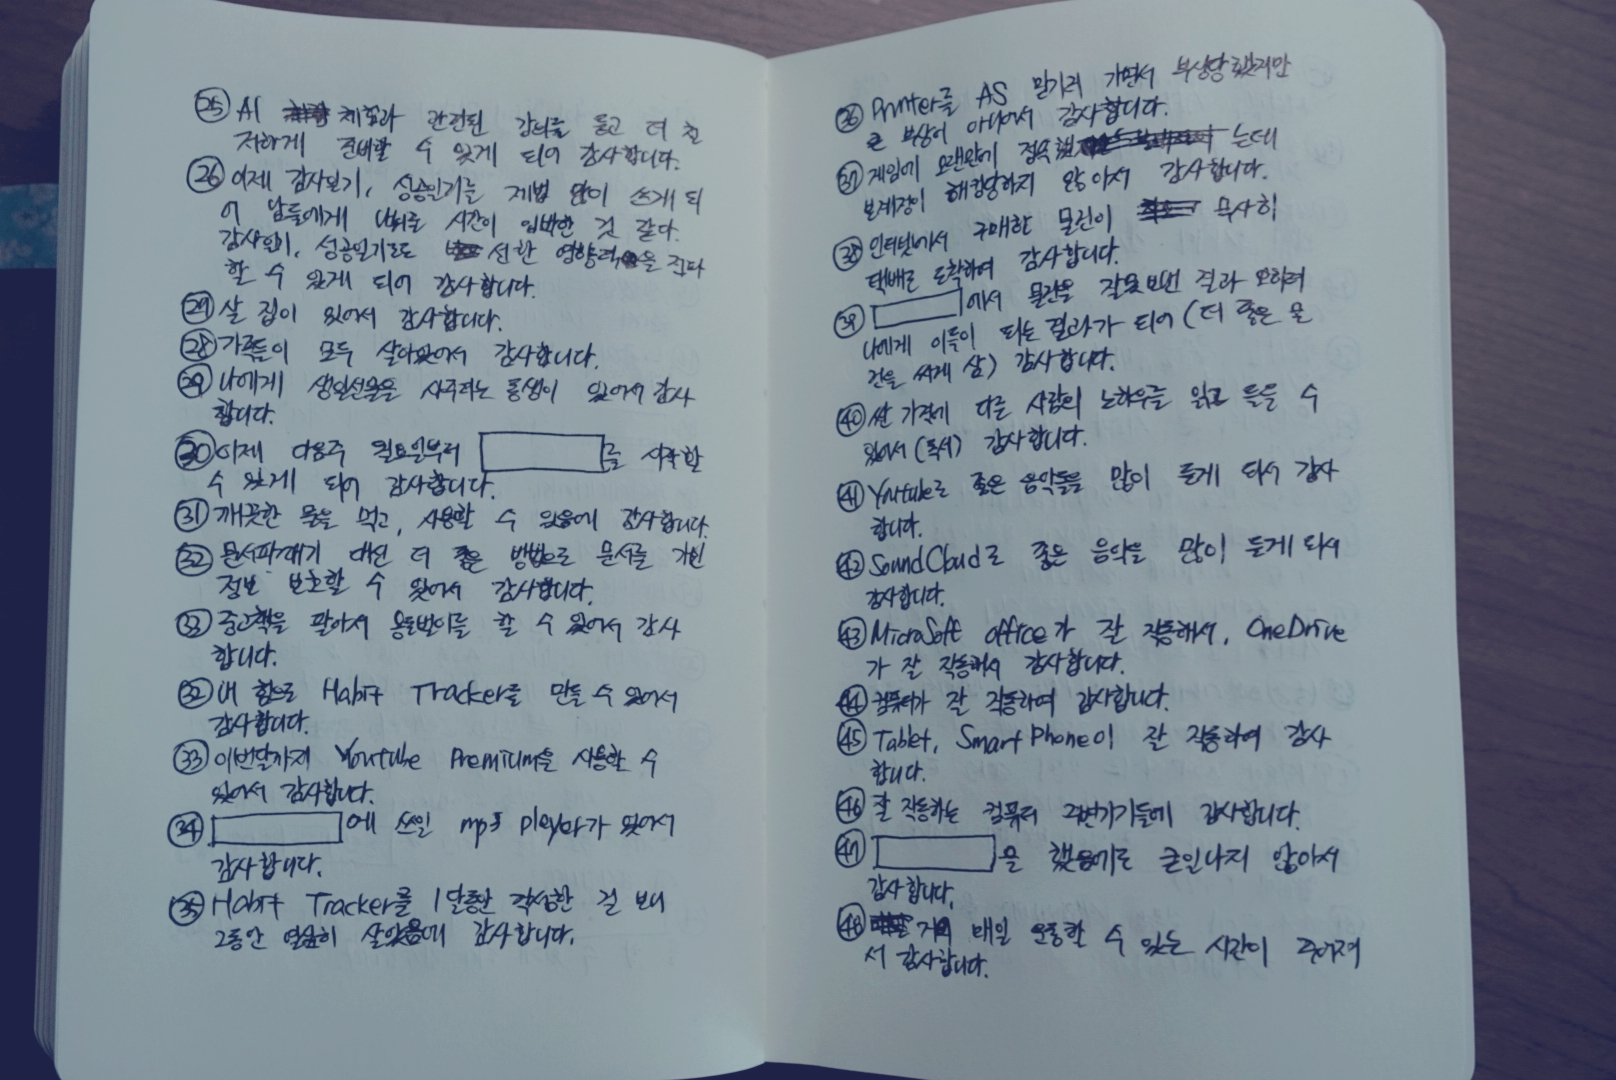 ㉕ AI 체험과 관련된 강의를 듣고 더 철
저하게 준비할 수 있게 되어 감사합니다.
㉖ 이제 감사일기, 성공일기를 제법 많이 쓰게 되
어 남들에게 나눠줄 시간이 임박한 것 같다.
감사일기, 성공일기로도 선한 영향력을 전파
할 수 있게 되어 감사합니다.
㉗ 살 집이 있어서 감사합니다.
㉘ 가족들이 모두 살아있어서 감사합니다.
㉙ 나에게 생일선물을 사주려는 동생이 있어서 감사
합니다.
㉚ 이제 다음주 월요일부터 를 시작할
수 있게 되어 감사합니다.
㉛ 깨끗한 물을 먹고, 사용할 수 있음에 감사합니다.
㉜ 문서파쇄기 대신 더 좋은 방법으로 문서를 개인
정보 보호할 수 있어서 감사합니다.
㉝ 중고책을 팔아서 용돈벌이를 할 수 있어서 감사
합니다.
㉜ 내 힘으로 Habit Tracker를 만들 수 있어서
감사합니다.
㉝ 이번달까지 Youtube Premium을 사용할 수
있어서 감사합니다.
㉞ 에 쓰일 mp3 player가 있어서
감사합니다.
㉟ Habit Tracker를 1달동안 작성한 걸 보니
그동안 열심히 살았음에 감사합니다.
㊱ Printer를 AS 맡기러 가면서 부상당했지만
큰 부상이 아니어서 감사합니다.
㊲ 게임에 오랜만에 접속했는데
보계정이 해킹당하지 않아서 감사합니다.
㊳ 인터넷에서 구매한 물건이 무사히
택배로 도착하여 감사합니다.
㊴ 에서 물건을 잘못보낸 결과 오히려
나에게 이득이 되는 결과가 되어 (더 좋은 물
건을 싸게 삼) 감사합니다.
㊵ 싼 가격에 다른 사람의 노하우를 읽고 들을 수
있어서 (독서) 감사합니다.
㊶ Youtube로 좋은 음악들을 많이 듣게 되서 감사
합니다.
㊷ SoundCloud로 좋은 음악을 많이 듣게 되서
감사합니다.
㊸ MicroSoft office가 잘 작동해서, OneDrive
가 잘 작동해서 감사합니다.
㊹ 컴퓨터가 잘 작동하여 감사합니다.
㊺ Tablet, Smart Phone이 잘 작동하여 감사
합니다.
㊻ 잘 작동하는 컴퓨터 주변기기들에 감사합니다.
㊼ 을 했음에도 큰일나지 않아서
감사합니다.
㊽ 거의 매일 운동할 수 있는 시간이 주어져
서 감사합니다.